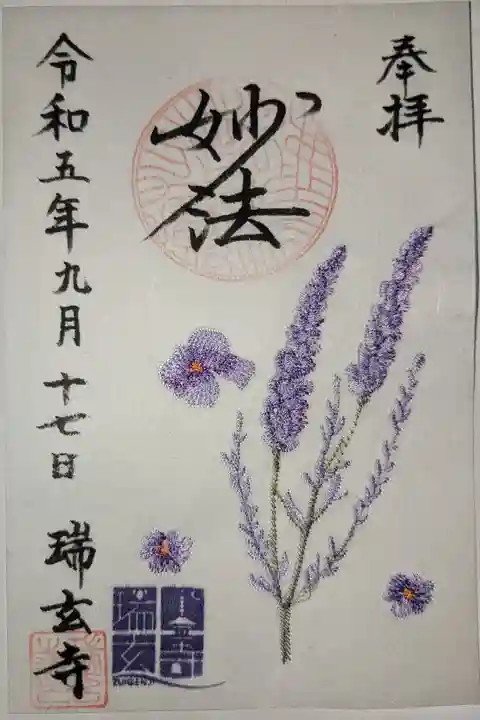 奉拝
妙法
令和五年九月十七日 瑞玄寺
瑞玄
ZUIGENJI